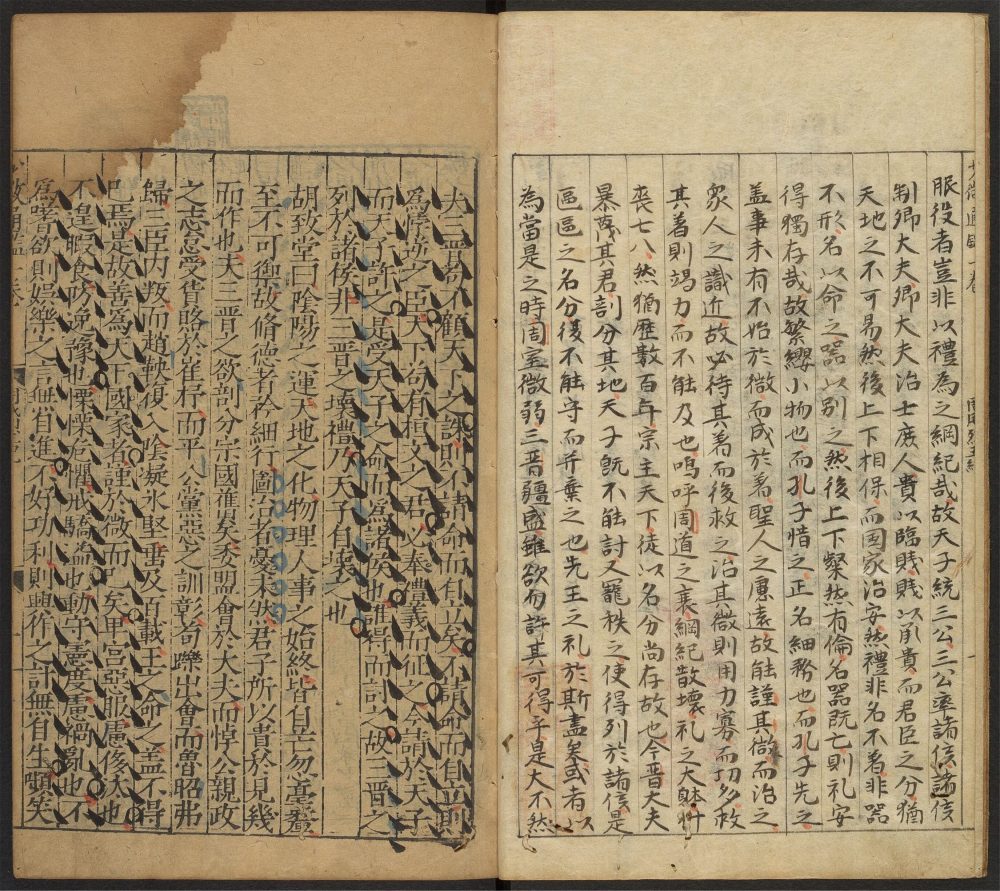 服役者豈非以禮為之綱紀哉故天子統三公三公率諸侯諸侯
制卿大夫卿大夫治士庶人貴以臨賤賤以承貴而君臣之分猶
天地之不可易然後上下相保而国家治安然禮非名不著非器
不形名以命之器以別之然後上下粲然有倫名器既亡則礼安
得獨存哉故繁纓小物也而孔子惜之正名細務也而孔子先之
盖事未有不始於微而成於著聖人之慮遠故能謹其微而治之
衆人之識近故必待其著而後救之治其微則用力寡而功多救
其著則竭力而不能及也嗚呼周道之衰綱紀散壞礼之大躰什
喪七八然猶歷數百年宗主天下徒以名分尚存故也今晋大夫
暴蔑其君剖分其地天子既不能討又寵秩之使得列於諸侯是
區區之名分復不能守而并棄之也先王之礼於斯盡矣或者以
為當是之時周室微弱三晋疆盛雖欲勿許其可得乎是大不然
夫三晋苟不顧天下之誅則不請命而自立矣不請命而自立則
爲悖逆之臣天下苟有桓文之君必奉禮義而征之今請於天子
而天子許之是受天子之命而爲諸侯也誰得而討之故三晋之
列於諸侯非三晋之壊禮乃天子自壊之也
胡致堂曰陰陽之運天地之化物理人事之始終皆自芒忽毫釐
至不可禦故脩德者矜細行圖治者憂未然君子所以貴於見幾
而作也夫三晋之欲剖分宗國淮 矣委盟會於大夫而悼公親政
之志怠受貨賂於崔杼而平公黨惡之訓彰荀躒出會而魯昭弗
歸三臣内叛而趙鞅復入陰凝氷堅垂及百載王之命之盖不得
巳焉是故善爲天下國家者謹於微而巳矣卑宫惡服慮侈汰也
不遑暇食防逸豫也慄慄危懼戒驕溢也動守憲度慮禍亂也不
爲嗜欲則娯樂之言無自進不好功利則興作之計無自生嚬笑